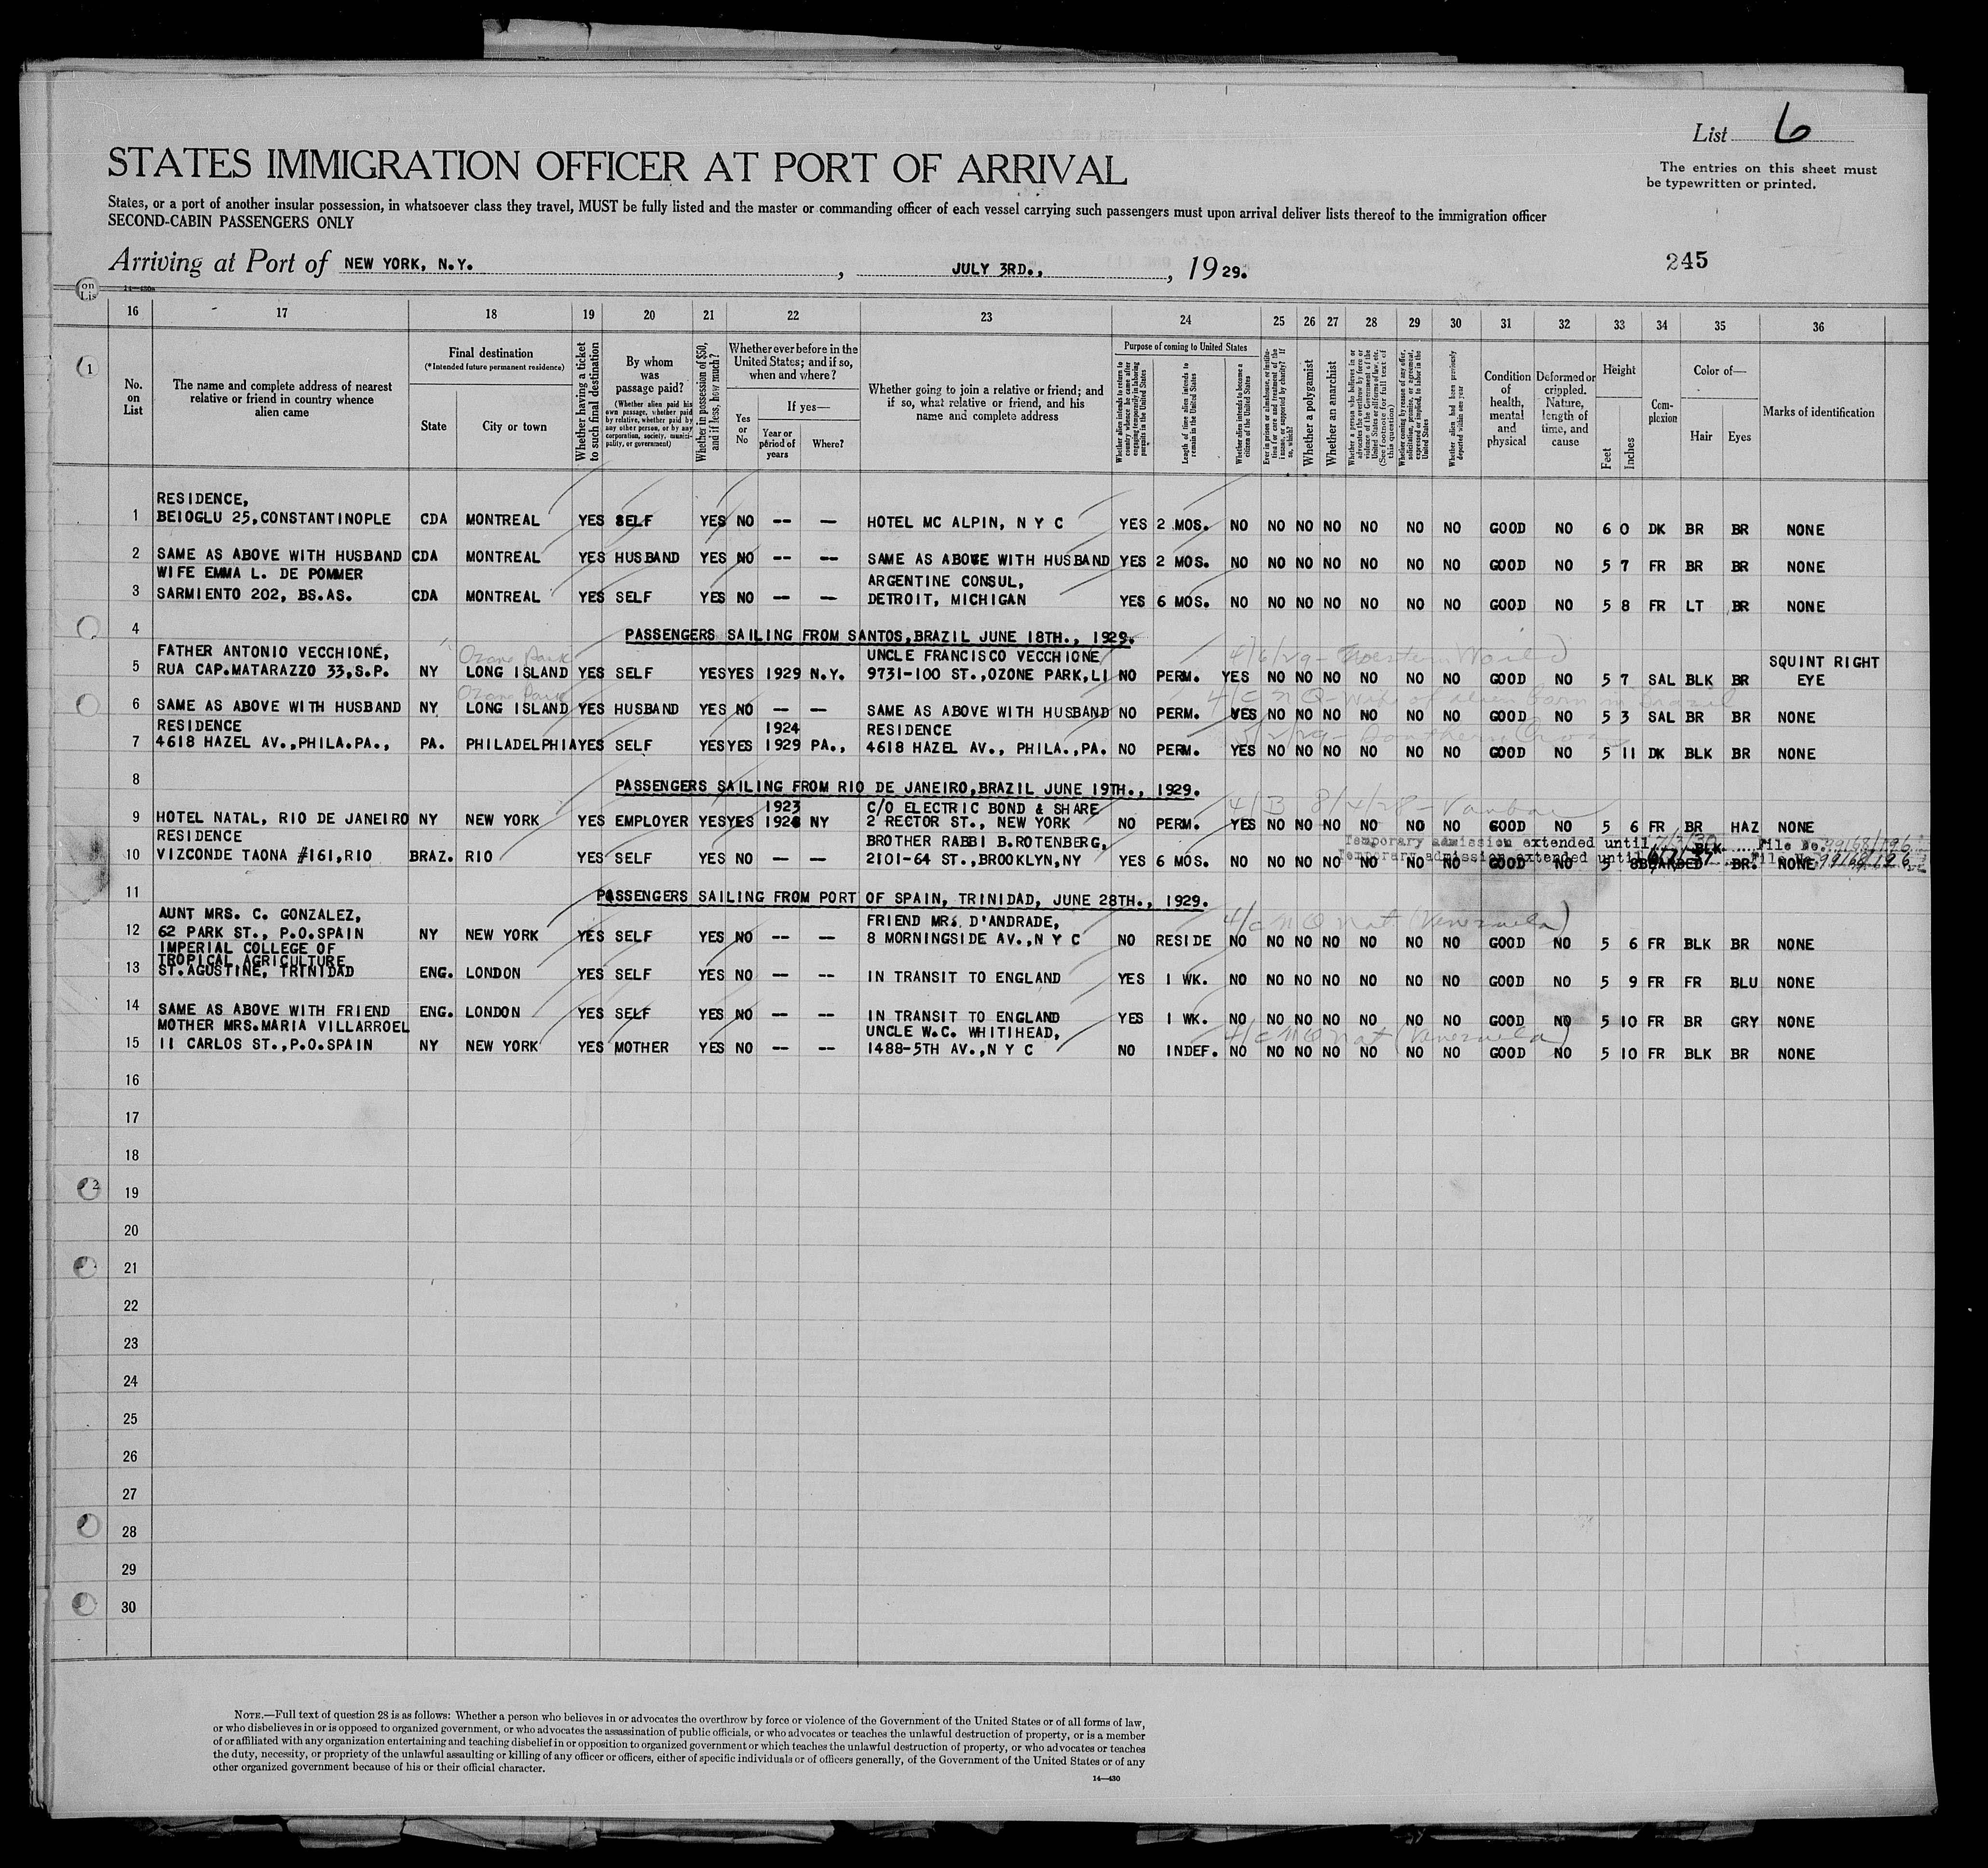 List 6
STATES IMMIGRATION OFFICER AT PORT OF ARRIVAL
The entries on this sheet must
be typewritten or printed.
States, or a port of another insular possession, in whatsoever class they travel, MUST be fully listed and the master or commanding officer of each vessel carrying such passengers must upon arrival deliver lists thereof to the immigration officer
SECOND-CABIN PASSENGERS ONLY
Arriving at Port of NEW YORK, N.Y. , JULY 3RD., , 1929.
245
on
Lis
14—430a
16 17 18 19 20 21 22 23 24 25 26 27 28 29 30 31 32 33 34 35 36
1
No. on List
The name and complete address of nearest relative or friend in country whence alien came
Final destination
(*Intended future permanent residence)
State
City or town
Whether having a ticket to such final destination
By whom was passage paid?
(Whether alien paid his own passage, whether paid by relative, whether paid by any other person, or by any corporation, society, municipality, or government)
Whether in possession of $50, and if less, how much?
Whether ever before in the United States; and if so, when and where?
Yes or No
If yes—
Year or period of years
Where?
Whether going to join a relative or friend; and if so, what relative or friend, and his name and complete address
Purpose of coming to United States
Whether alien intends to return to country whence he came after engaging temporarily in laboring pursuits in the United States
Length of time alien intends to remain in the United States
Whether alien intends to become a citizen of the United States
Ever in prison or almshouse, or institution for care and treatment of the insane, or supported by charity? If so, which?
Whether a polygamist
Whether an anarchist
Whether a person who believes in or advocates the overthrow by force or violence of the Government of the United States or all forms of law, etc. (See footnote for full text of this question)
Whether coming by reason of any offer, solicitation, promise, or agreement, expressed or implied, to labor in the United States
Whether alien had been previously deported within one year
Condition of health, mental and physical
Deformed or crippled. Nature, length of time, and cause
Height
Feet
Inches
Complexion
Color of—
Hair
Eyes
Marks of identification
RESIDENCE,
1 BEIOGLU 25,CONSTANTINOPLE CDA MONTREAL YES SELF YES NO -- — HOTEL MC ALPIN, N Y C YES 2 MOS. NO NO NO NO NO NO NO GOOD NO 6 0 DK BR BR NONE
2 SAME AS ABOVE WITH HUSBAND CDA MONTREAL YES HUSBAND YES NO -- -- SAME AS ABOVE WITH HUSBAND YES 2 MOS. NO NO NO NO NO NO NO GOOD NO 5 7 FR BR BR NONE
WIFE EMMA L. DE POMMER ARGENTINE CONSUL,
3 SARMIENTO 202, BS.AS. CDA MONTREAL YES SELF YES NO -- -- DETROIT, MICHIGAN YES 6 MOS. NO NO NO NO NO NO NO GOOD NO 5 8 FR LT BR NONE
4 PASSENGERS SAILING FROM SANTOS,BRAZIL JUNE 18TH., 1929.
FATHER ANTONIO VECCHIONE, Ozone Park UNCLE FRANCISCO VECCHIONE 4/6/29- Western World SQUINT RIGHT
5 RUA CAP.MATARAZZO 33,S.P. NY LONG ISLAND YES SELF YES YES 1929 N.Y. 9731-100 ST.,OZONE PARK,LI NO PERM. YES NO NO NO NO NO NO GOOD NO 5 7 SAL BLK BR EYE
Ozone Park 4/C N Q-Wife of alien born in Brazil
6 SAME AS ABOVE WITH HUSBAND NY LONG ISLAND YES HUSBAND YES NO -- -- SAME AS ABOVE WITH HUSBAND NO PERM. YES NO NO NO NO NO NO GOOD NO 5 3 SAL BR BR NONE
RESIDENCE 1924 RESIDENCE 3/2/29- Southern Cross
7 4618 HAZEL AV.,PHILA.PA., PA. PHILADELPHIA YES SELF YES YES 1929 PA., 4618 HAZEL AV., PHILA.,PA. NO PERM. YES NO NO NO NO NO NO GOOD NO 5 11 DK BLK BR NONE
8 PASSENGERS SAILING FROM RIO DE JANEIRO,BRAZIL JUNE 19TH., 1929.
1923 C/O ELECTRIC BOND & SHARE 4/B 8/4/28- Vauban
9 HOTEL NATAL, RIO DE JANEIRO NY NEW YORK YES EMPLOYER YES YES NY 2 RECTOR ST., NEW YORK NO PERM. YES NO NO NO NO NO NO GOOD NO 5 6 FR BR HAZ NONE
RESIDENCE BROTHER RABBI B.ROTENBERG, Temporary admission extended until File No. 99168/196
10 VIZCONDE TAONA #161,RIO BRAZ. RIO YES SELF YES NO -- -- 2101-64 ST.,BROOKLYN,NY YES 6 MOS. NO NO NO NO NO NO NO GOOD NO 5 8 BLK BEARDED BR. NONE
Temporary admission extended until File No. 99168/196
11 PASSENGERS SAILING FROM PORT OF SPAIN, TRINIDAD, JUNE 28TH., 1929.
AUNT MRS. C. GONZALEZ, FRIEND MRS. D'ANDRADE, 4/c N Q nat (Venezuela)
12 62 PARK ST., P.O.SPAIN NY NEW YORK YES SELF YES NO -- -- 8 MORNINGSIDE AV.,N Y C NO RESIDE NO NO NO NO NO NO NO GOOD NO 5 6 FR BLK BR NONE
IMPERIAL COLLEGE OF
TROPICAL AGRICULTURE
13 ST.AGUSTINE, TRINIDAD ENG. LONDON YES SELF YES NO -- -- IN TRANSIT TO ENGLAND YES 1 WK. NO NO NO NO NO NO NO GOOD NO 5 9 FR FR BLU NONE
14 SAME AS ABOVE WITH FRIEND ENG. LONDON YES SELF YES NO -- -- IN TRANSIT TO ENGLAND YES 1 WK. NO NO NO NO NO NO NO GOOD NO 5 10 FR BR GRY NONE
MOTHER MRS.MARIA VILLARROEL UNCLE W.C. WHITIHEAD, 4/c N Q nat (Venezuela)
15 11 CARLOS ST.,P.O.SPAIN NY NEW YORK YES MOTHER YES NO -- -- 1488-5TH AV.,N Y C NO INDEF. NO NO NO NO NO NO NO GOOD NO 5 10 FR BLK BR NONE
16
17
18
2
19
20
21
22
23
24
25
26
27
28
29
30
NOTE.—Full text of question 28 is as follows: Whether a person who believes in or advocates the overthrow by force or violence of the Government of the United States or of all forms of law,
or who disbelieves in or is opposed to organized government, or who advocates the assassination of public officials, or who advocates or teaches the unlawful destruction of property, or is a member
of or affiliated with any organization entertaining and teaching disbelief in or opposition to organized government or which teaches the unlawful destruction of property, or who advocates or teaches
the duty, necessity, or propriety of the unlawful assaulting or killing of any officer or officers, either of specific individuals or of officers generally, of the Government of the United States or of any
other organized government because of his or their official character.
14—430